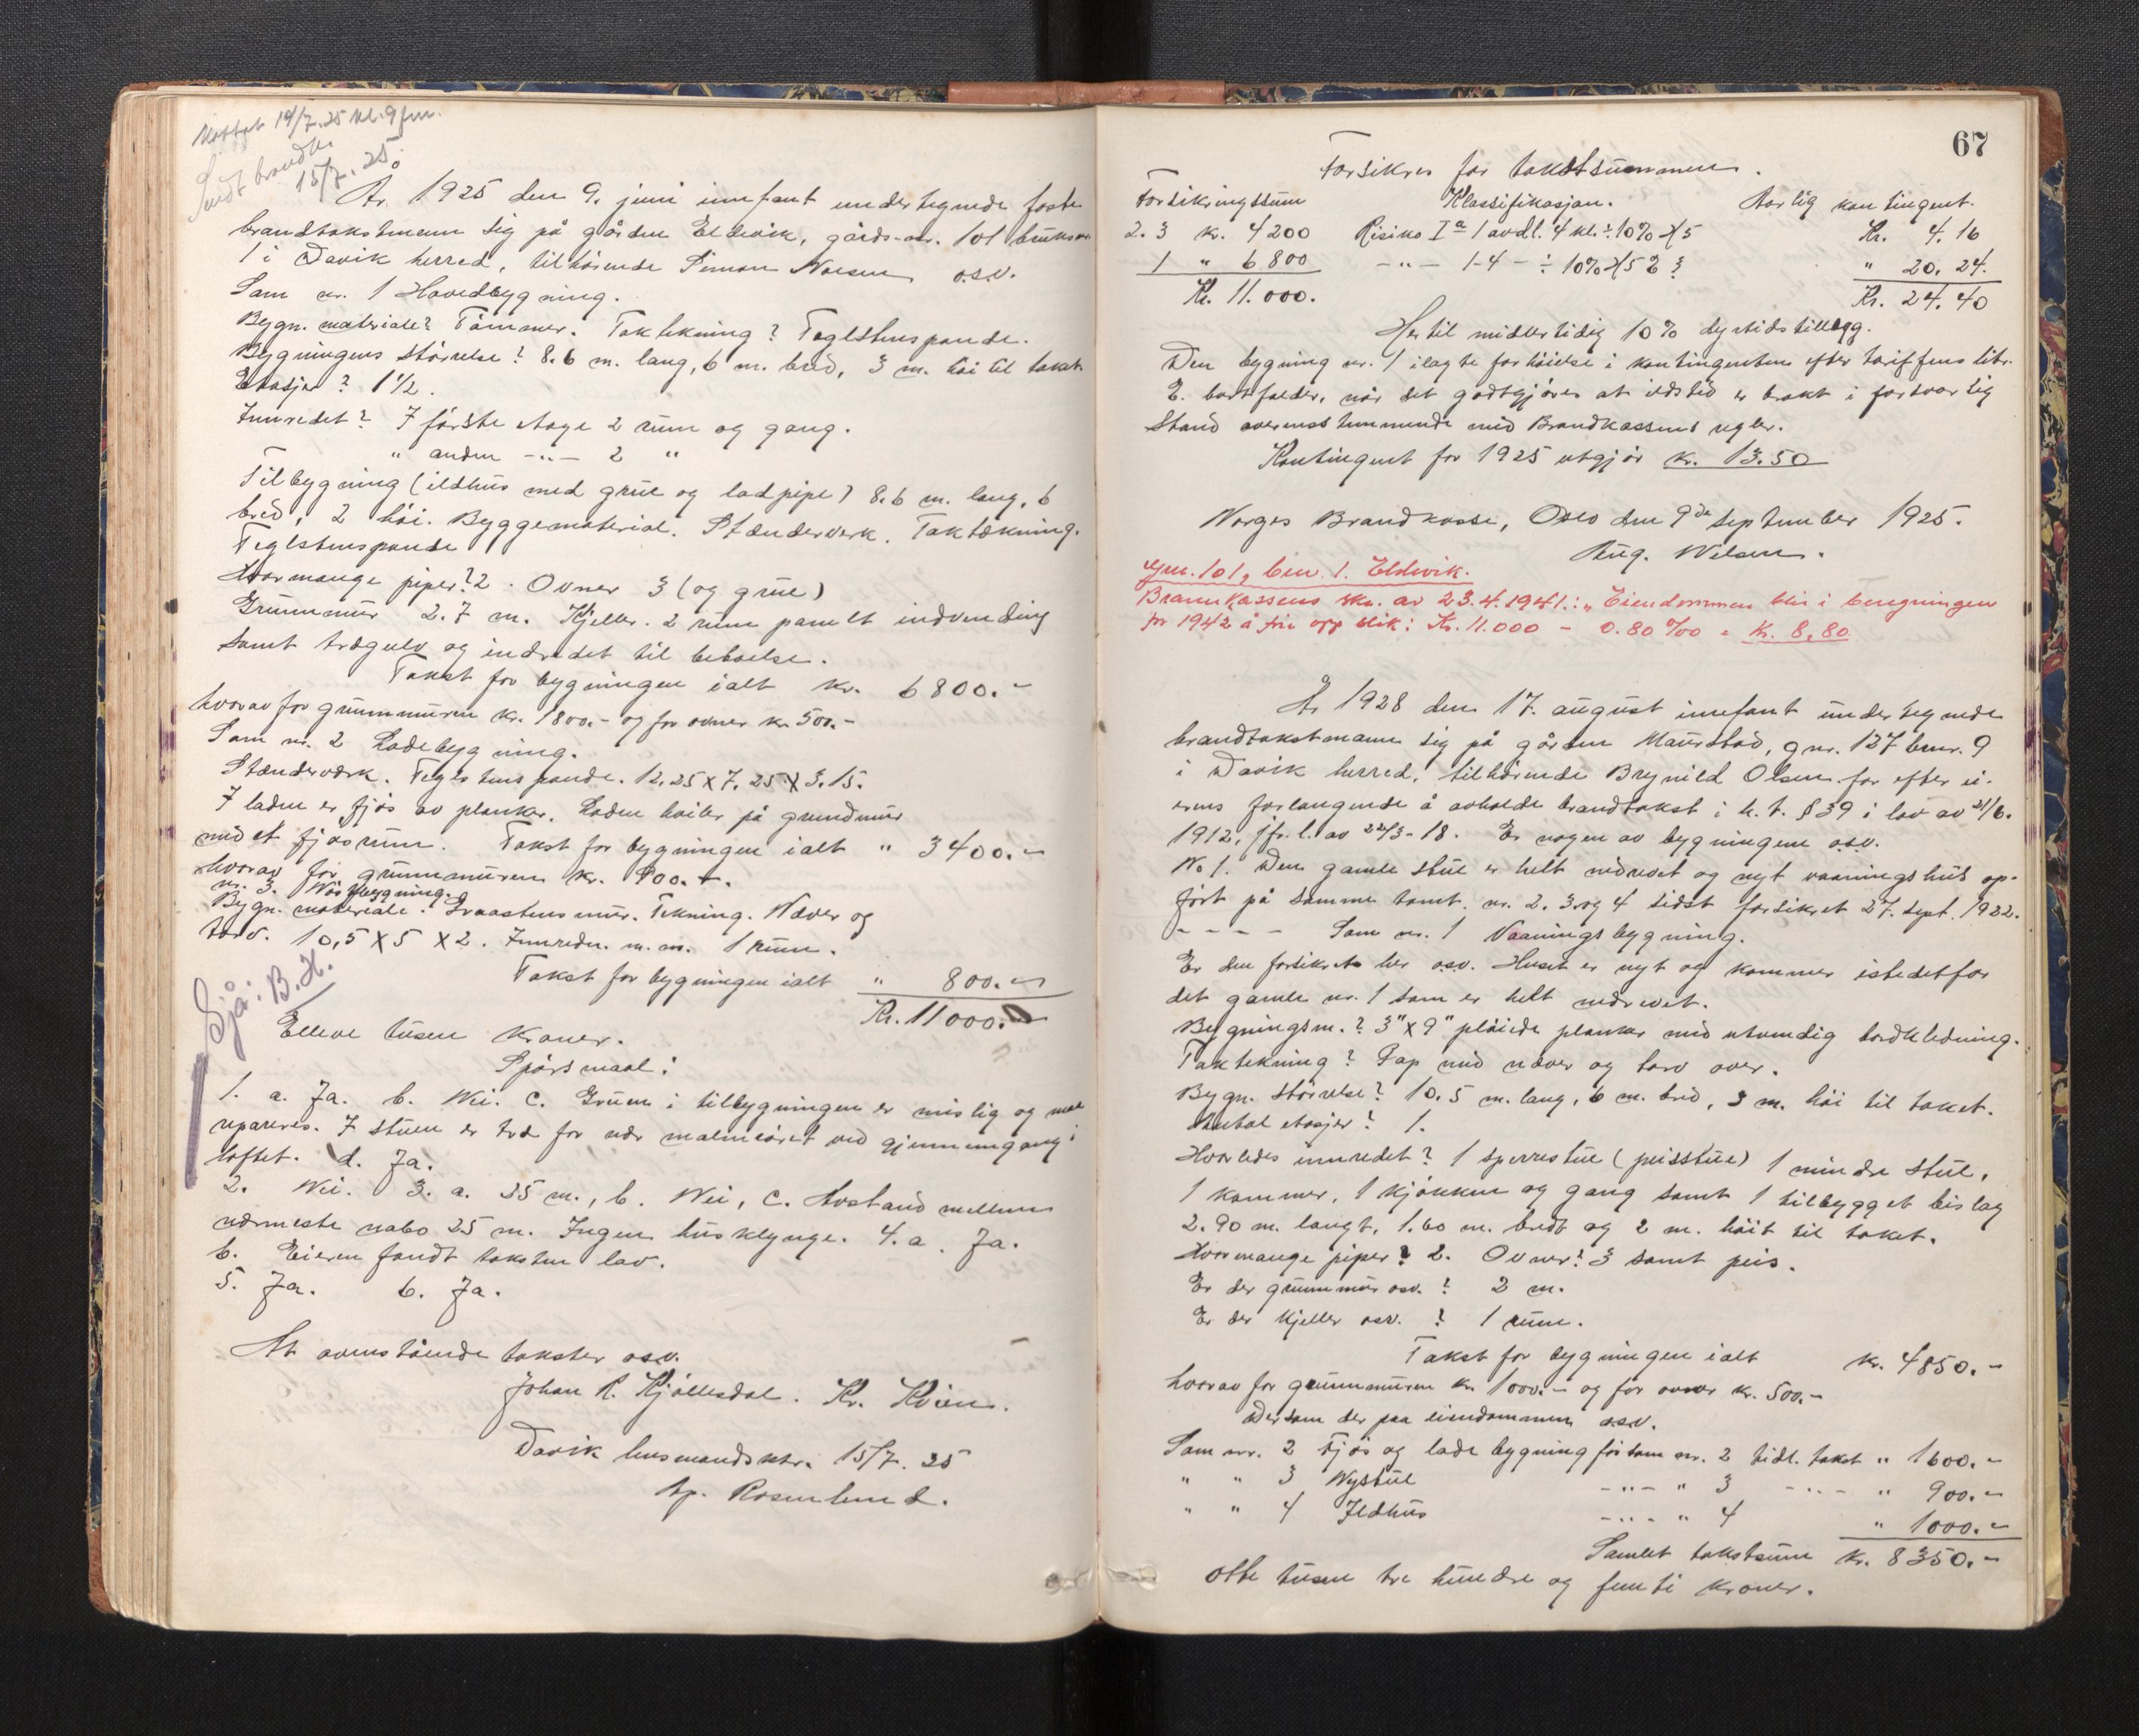 Mottat 14/7.25 kl. 9 fm.
Sendt brandk.
15/7.25.
År 1925 den 9. juni innfant undertegnede faste
brandtakstmenn sig på gården Eldevik, gårds-nr. 101 bruksnr.
1 i Davik herred, tilhörende Simon Nilsen o.s.v.
Som nr. 1 Hovedbygning.
Bygn. materiale? Tömmer. Taktekning? Teglstenspande.
Bygningens störrelse? 8.6 m. lang, 6 m. bred, 3 m. höi til taket
Etasjer? 1½.
Innredet? I förste etage 2 rum og gang.
" anden -"- 2 "
Tilbygning (ildhus med grue og ladpipe) 8.6 m. lang, 6
bred, 2 höi. Byggematerial. Stenderverk. Taktekning.
Teglstenspande
Hvormange piper? 2. Ovner 3 (og grue)
Grunnmur 2.7 m. Kjeller. 2 rum panelt indvending
samt trægulv og indredet til beboelse.
Takst for bygningen ialt kr. 6800.-
hvorav for grunnmuren kr. 1800.- og for ovner kr. 500.-
Som nr. 2 Ladebygning.
Stenderverk. Teglstenspande. 12.25 x 7.25 x 3.15.
I laden er fjös av planker. Laden hviler på grundmur
med et fjösrum. Takst for bygningen ialt " 3400.-
hvorav for grunnmuren kr. 900.-.
nr. 3. Vårbygning.
Bygn. materiale. Graastensmur. Tekning. Næver og
torv. 10,5 x 5 x 2. Innredn. m.m. 1 rum.
Takst for bygningen ialt " 800.-
Kr. 11000.-
Sjå: B.H.
Elleve tusen kroner.
Spörsmaal:
1. a. Ja. b. Nei. c. Gruen i tilbygningen er mislig og maa
repareres. I stuen er tre for nær malmröret ved gjennemgang i
loftet. d. Ja.
2. Nei. 3. a. 25 m., b. Nei, c. Avstand mellem
nærmeste nabo 25 m. Ingen husklynge. 4. a. Ja.
b. Eieren fandt taksten lav.
5. Ja. 6. Ja.
At ovenstående takster osv.
Johan R. Kjöllesdal. Kr. Hvien.
Davik lensmandsktr. 15/7.25
Ap. Rosenlund.
67
Forsikres for takstsummen.
Forsikringssum Klassifikasjon. Aarlig kontingent.
2. 3 kr. 4200 Risiko Iª 1 avdl. 4 kl. ÷ 10% x 5 Kr. 4.16
1 " 6800 -"- 1-4 - ÷ 10% x 5 E 3 " 20.24.
Kr. 11.000. Kr. 24.40
Hertil midlertidig 10% dyrtidstillegg.
Den bygning nr. 1 ilagte forhöielse i kontingenten efter tariffens litr.
E. bortfalder, når det godtgjöres at ildsted er brakt i forsvarlig
stand overensstemmende med Brandkassens regler.
Kontingent for 1925 utgjör kr. 13.50
Norges Brandkasse, Oslo den 9de september 1925.
Aug. Wilsen.
Gnr. 101, bnr. 1. Eldevik.
Brannkassens skr. av 23.4.1941.: "Eiendommen blir i beregningen
for 1942 å före opp slik: Kr. 11.000 - 0.80 ‰ = Kr. 8,80
År 1928 den 17. august innfant undertegnede
brandtakstmenn sig på gården Maurstad, gnr. 127 bnr. 9
i Davik herred, tilhörende Brynild Olsen for efter ei-
erens forlangende å avholde brandtakst i h. t. § 39 i lov av 21/6.
1912, jfr. l. av 22/3-18. Er nogen av bygningene osv.
No 1. Den gamle stue er helt nedrevet og nyt vaaningshus op-
fört på samme tomt. nr. 2. 3 og 4 sidst forsikret 27. sept. 1922.
- - - - Som nr. 1 Vaaningsbygning.
Er den forsikret her osv. Huset er nyt og kommer istedetfor
det gamle nr. 1 som er helt nedrevet.
Bygningsm.? 3" x 9" plöiede planker med utvendig bordkledning.
Taktekning? Pap med næver og torv over.
Bygn. störrelse? 10.5 m. lang, 6 m. bred, 3 m. höi til taket.
Antal etasjer? 1.
Hvorledes innredet? 1 sperrestue (peisstue) 1 mindre stue,
1 kammer, 1 kjökken og gang samt 1 tilbygget bislag
2.90 m. langt, 1.60 m. bredt og 2 m. höit til taket.
Hvormange piper? 2. Ovner? 3 samt peis.
Er der grunnmur osv.? 2 m.
Er der kjeller osv.? 1 rum.
Takst for bygningen ialt kr. 4850.-
hvorav for grunnmuren kr. 1000.- og for ovner kr. 500.-
Dersom der paa eiendommen osv.
Som nr. 2 Fjös og ladebygning för som nr. 2 tidl. takst " 1600.-
" " 3 Nystue -"- " 3 -"- " 900.-
" " 4 Ildhus -"- " 4 " 1000.-
Samlet takstsum kr. 8350.-
otte tusen tre hundre og femti kroner.